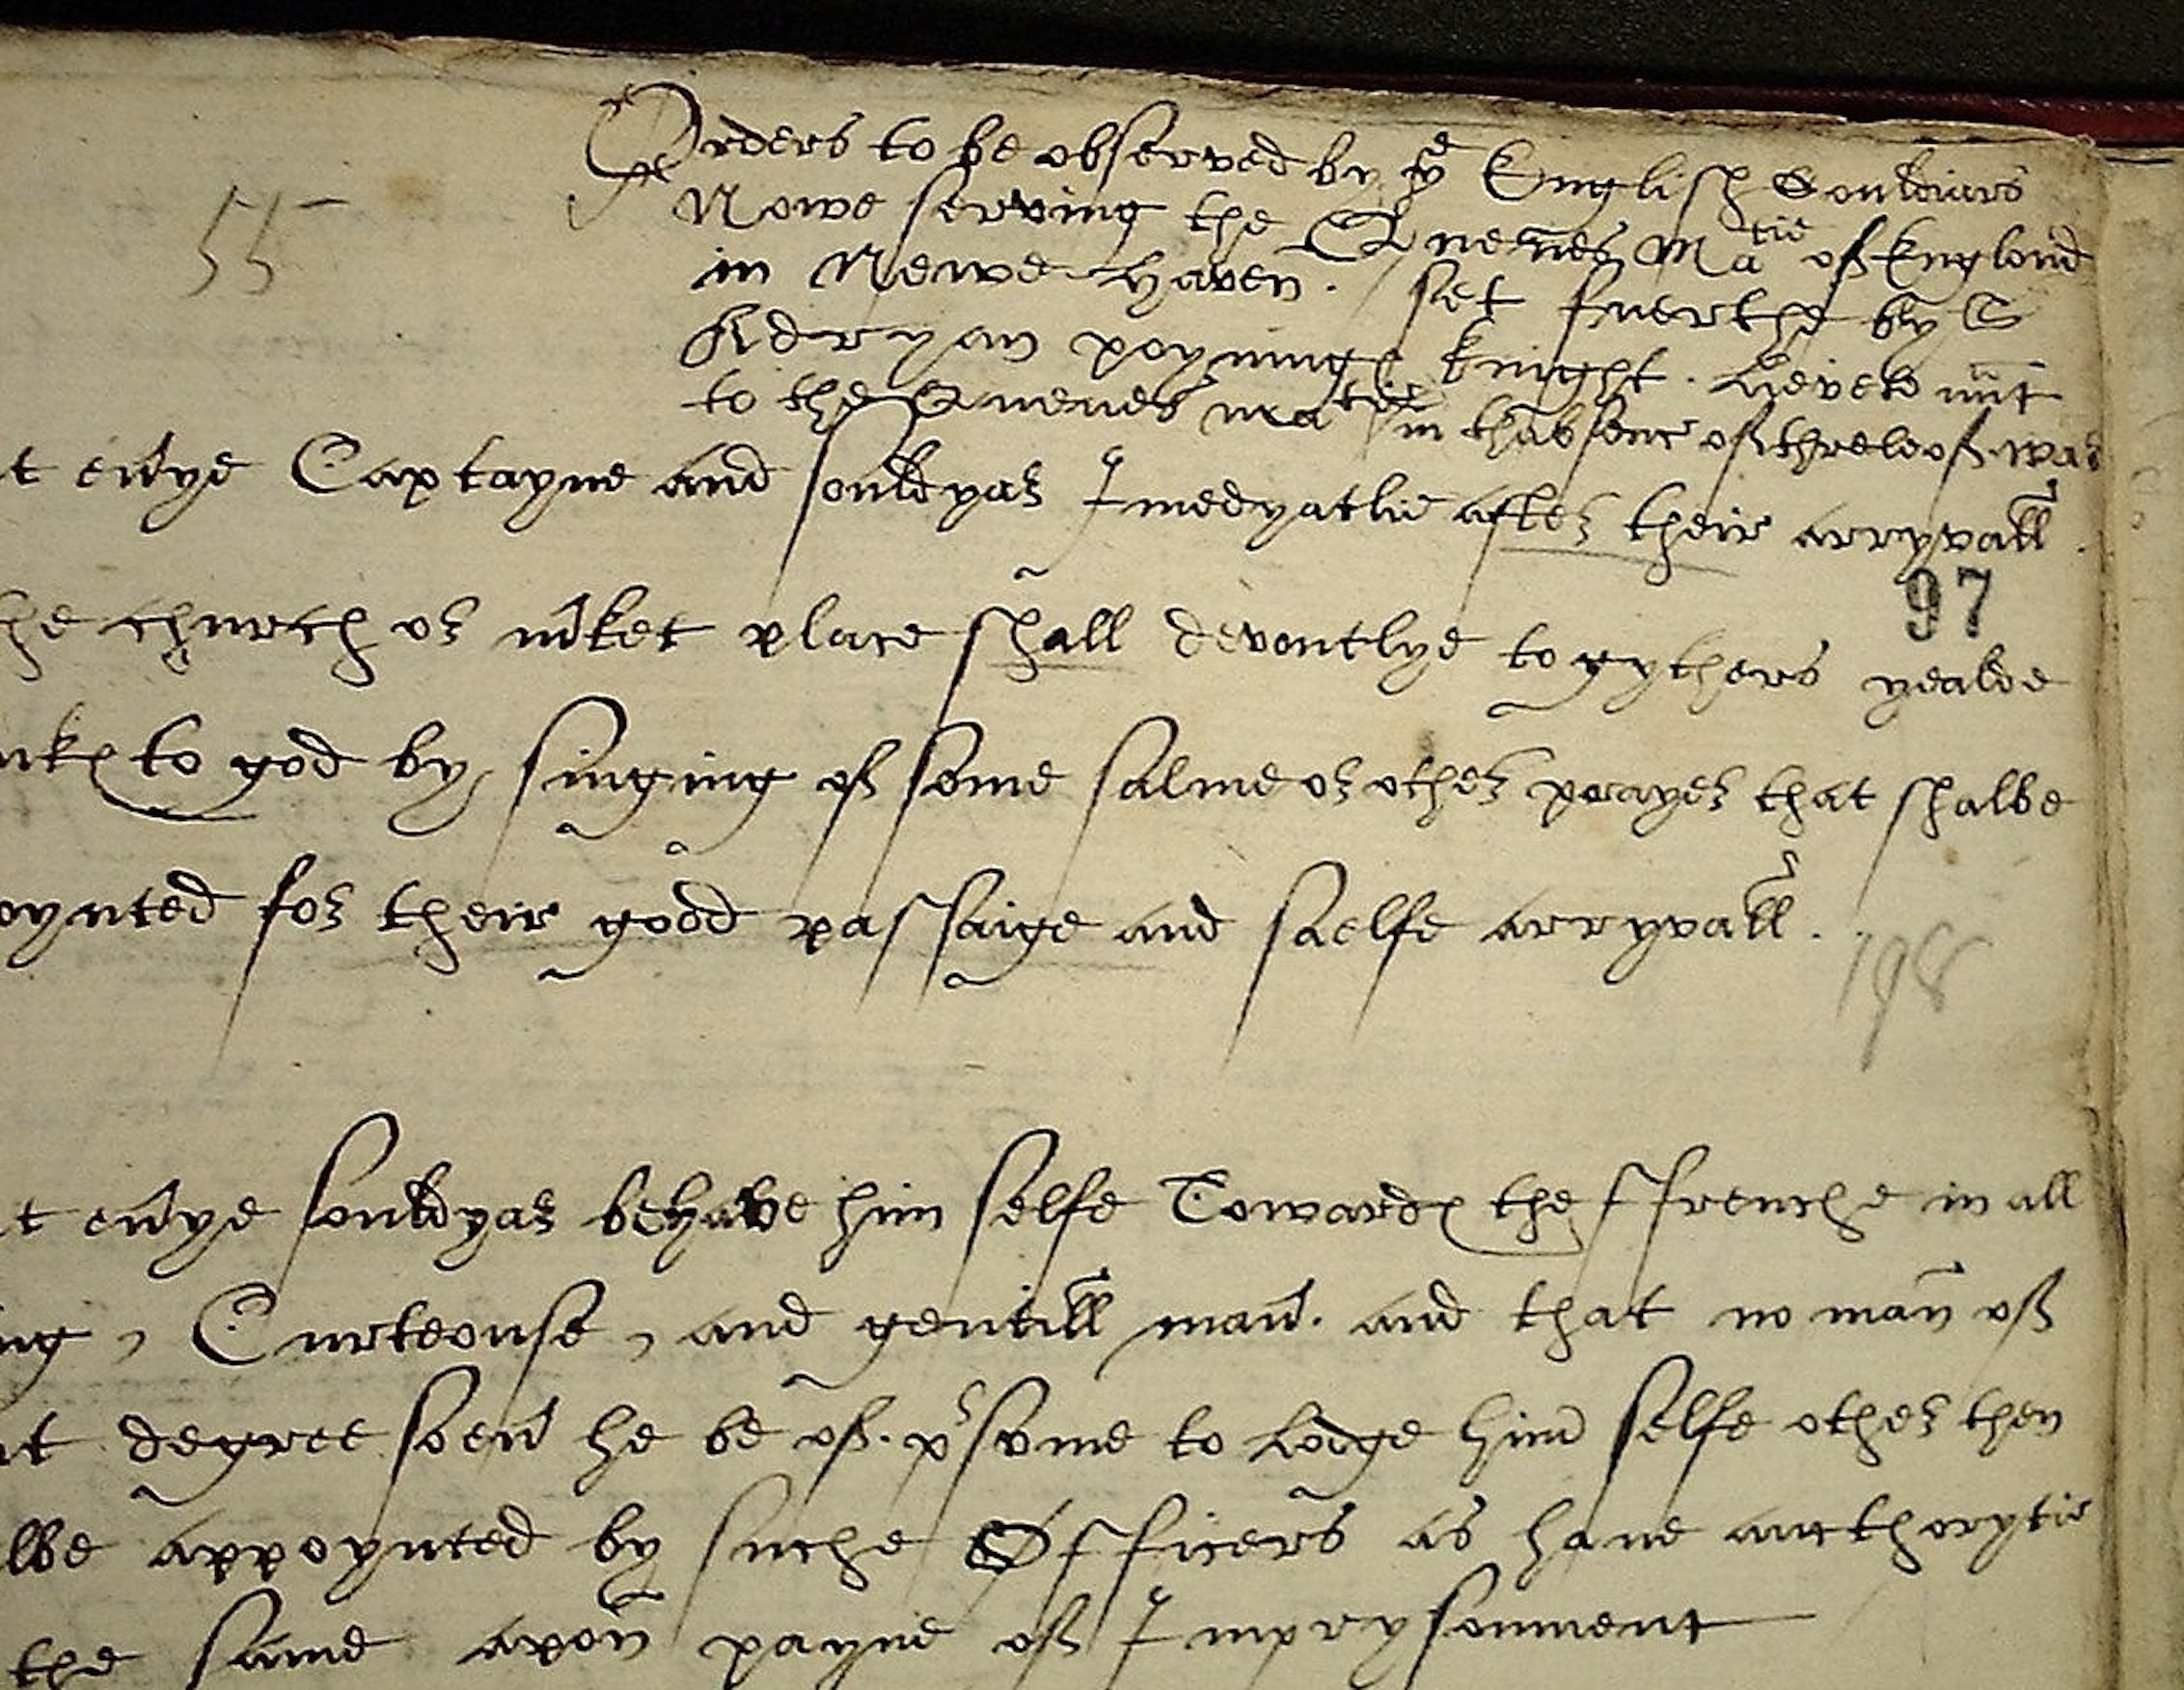 Orders to be observed by yͤ English Souldiars
55
Nowe serving the Quenes Maᵗⁱᵉ of Englond
in Newe Haven. set fuerthe by Sʳ
Adryan poynings knight. Lieveten̄nt
to the Quenes maᵗⁱᵉ in thabsenc of
t eu̾ye Captayne and souldyar Imedyatlie after their arryvall.
97
he church or m̾ket place shall devoutlye togythers yealde
nkes to god by singing of some salme or other prayer that shalbe
oynted for their good passaige and saelfe arryvall.
198
t eu̾ye souldyar behave him selfe Towardes the ffrenche in all
ng, Curteouse, and gentill man̾. and that no man of
t degree soeu̾ he be of. p̱sume to Lodge him selfe other then
lbe appoynted by suche Officers as have aucthorytie
the same apon payne of Imprysonment